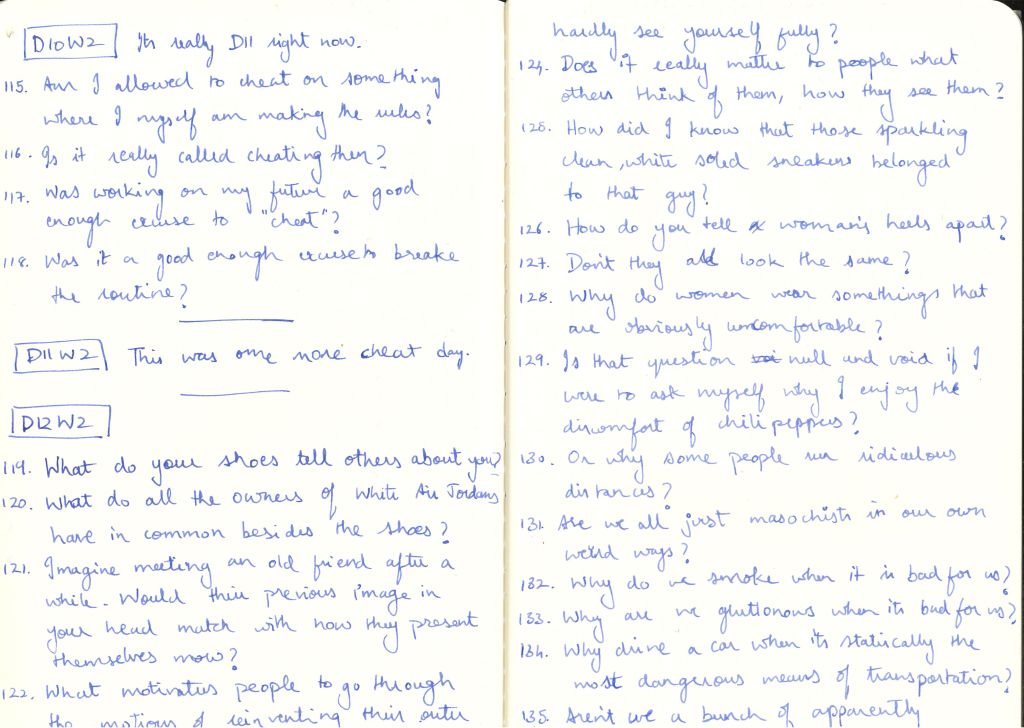 D10W2 It's really D11 right now.
115. Am I allowed to cheat on something
where I myself am making the rules?
116. Is it really called cheating then?
117. Was working on my future a good
enough excuse to "cheat"?
118. Was it a good enough excuse to breake
the routine?
D11W2 This was one more cheat day.
D12W2
119. What do your shoes tell others about you?
120. What do all the owners of White Air Jordans
have in common besides the shoes?
121. Imagine meeting an old friend after a
while. Would their previous image in
your head match with how they present
themselves now?
122. What motivates people to go through
the motions of reinventing their outer
hardly see yourself fully?
124. Does it really matter to people what
others think of them, how they see them?
125. How did I know that those sparkling
clean, white soled sneakers belonged
to that guy?
126. How do you tell a woman's heels apart?
127. Don't they all look the same?
128. Why do women wear somethings that
are obviously uncomfortable?
129. Is that question null and void if I
were to ask myself why I enjoy the
discomfort of chili peppers?
130. Or why some people run ridiculous
distances?
131. Are we all just masochists in our own
weird ways?
132. Why do we smoke when it is bad for us?
133. Why are we gluttonous when its bad for us?
134. Why drive a car when it's statiscally the
most dangerous means of transportation?
135. Aren't we a bunch of apparently